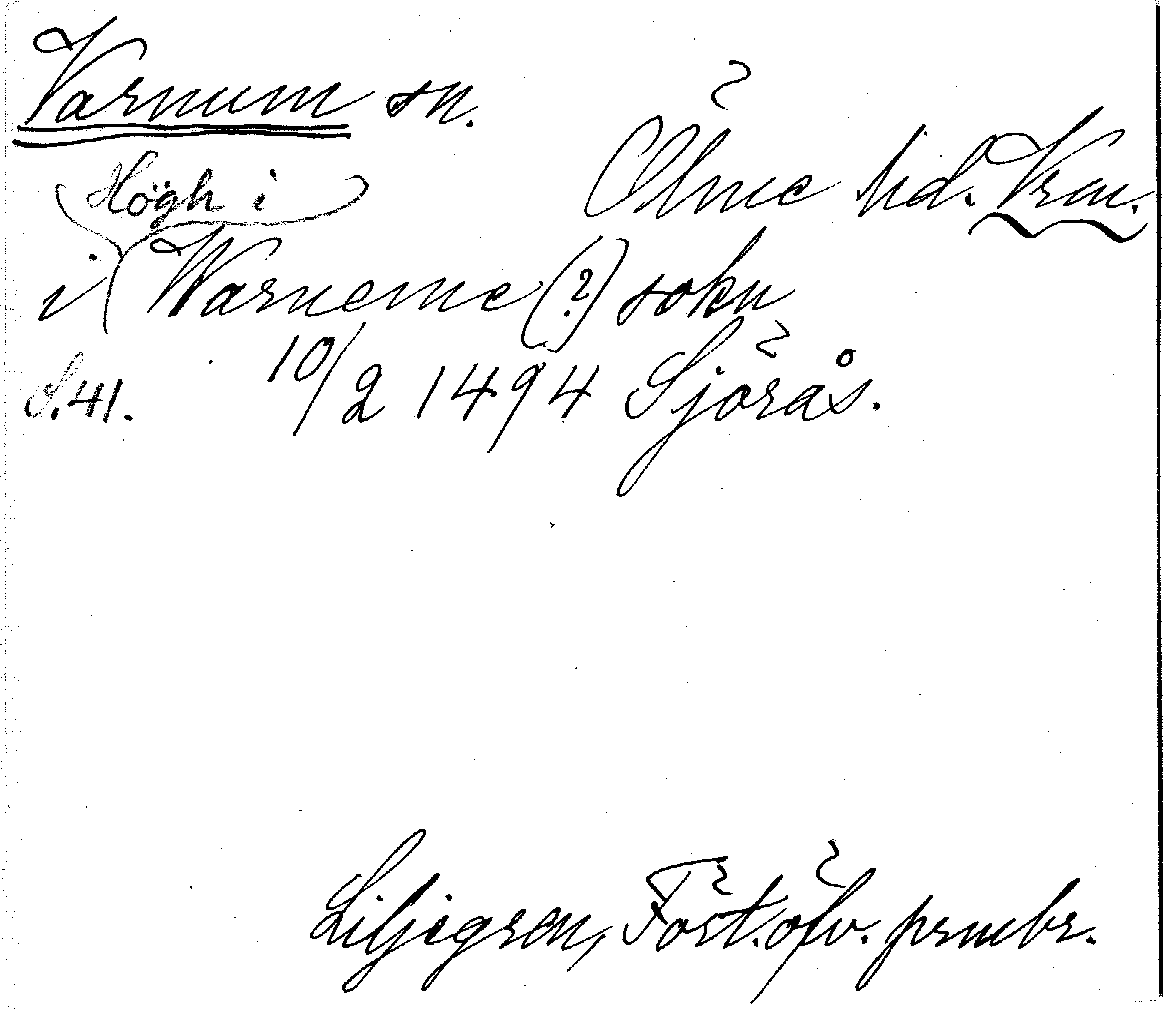 Varnum sn.
Ölme hd. Vrm.
Högh i
i Warneme (?) sokn
S. 41. 10/2 1494 Sjörås.
Liljegren, Fört. öfv. prmbr.